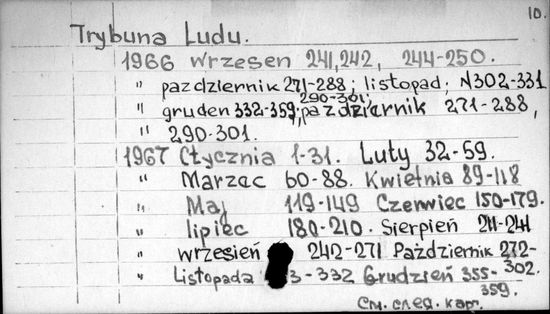 10.
Trybuna Ludu.
1966 Wrzesen 241,242, 244-250.
" pazdziernik 271-288; listopad; N302-331
290-301;
" gruden 332-359; pazdziernik 271-288,
" 290-301.
1967 Ctycznia 1-31. Luty 32-59.
" Marzac 60-88. Kwietnia 89-118
" Maj 119-149 Czerwiec 150-179.
" lipiec 180-210. Sierpień 211-241
" wrzesień 242-271 Październik 272-
302.
" Listopada 3-332 Grudzień 355-
359.
См. след. карт.